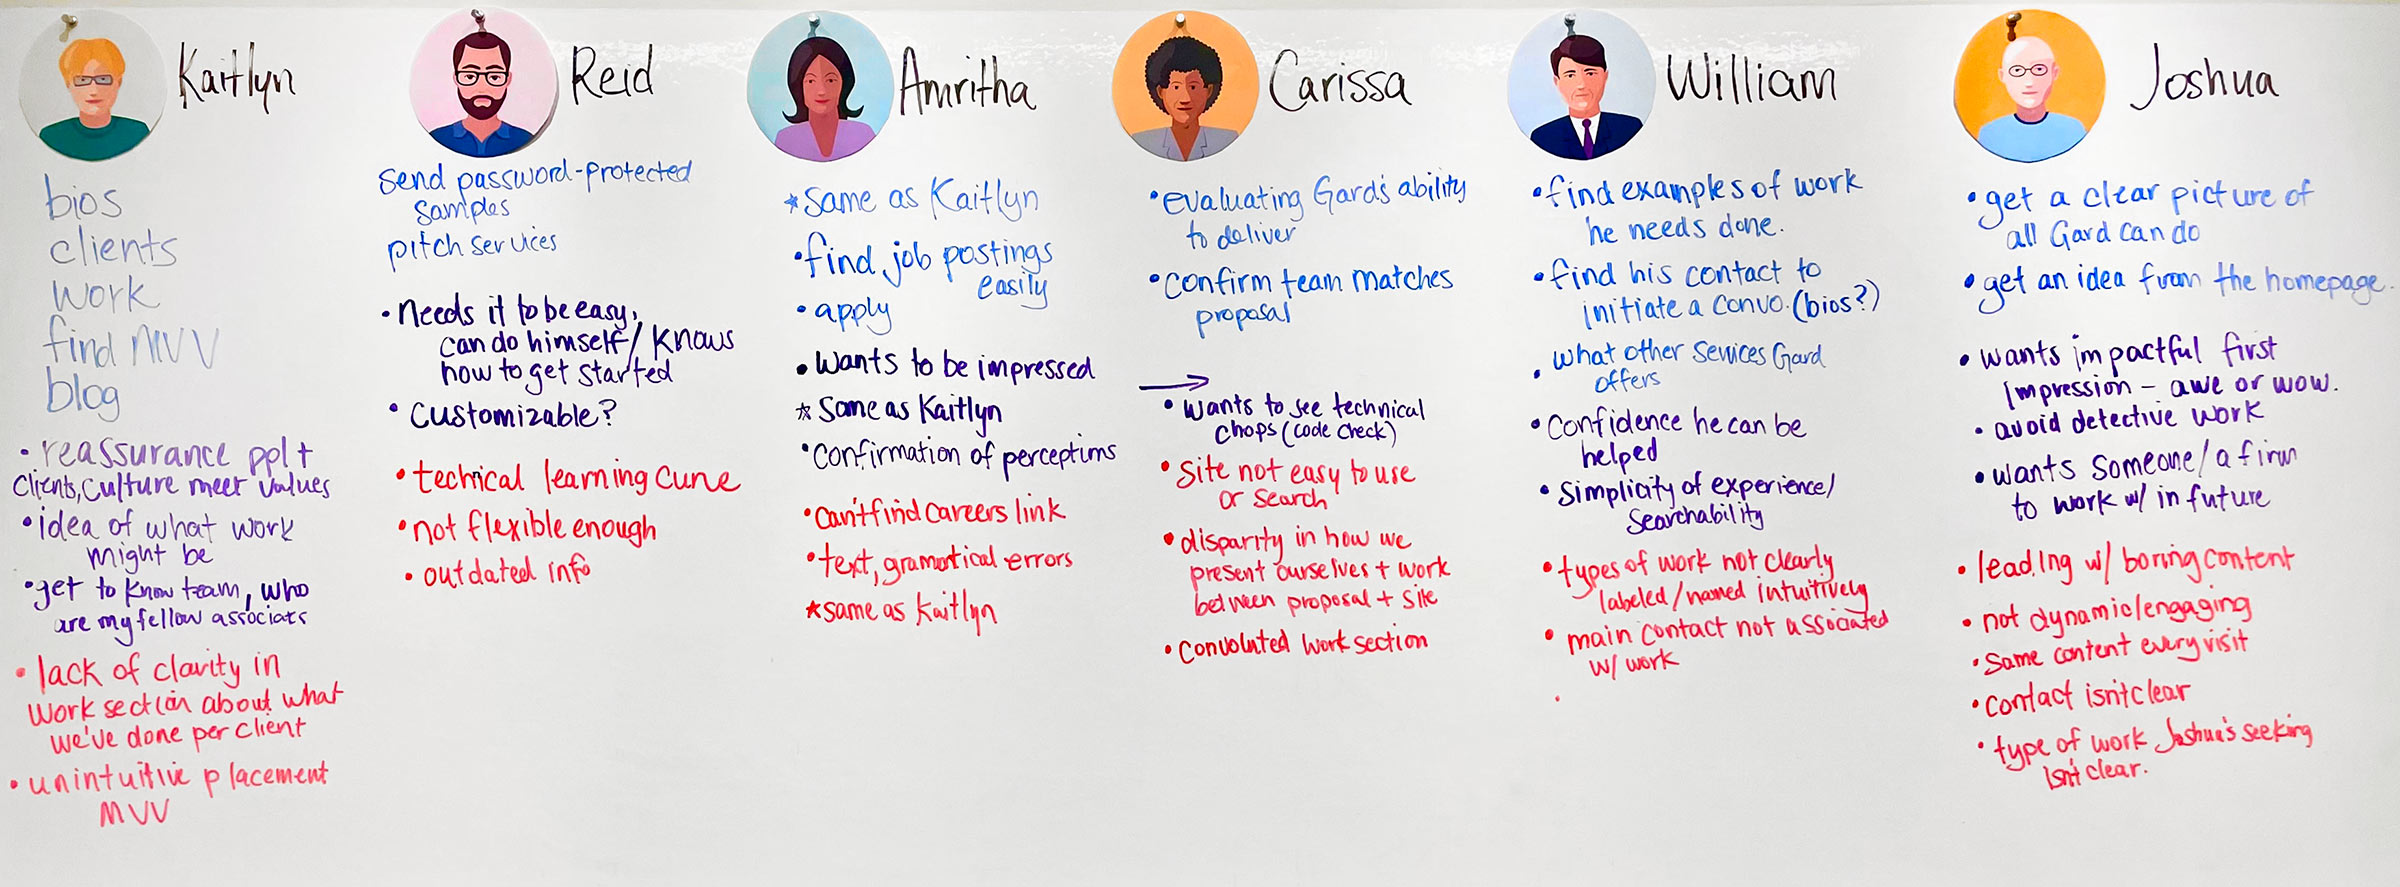 Kaitlyn
bios
clients
work
find MVV
blog
• reassurance ppl +
clients, culture meet values
• idea of what work
might be
• get to know team, who
are my fellow associats
• lack of clarity in
work section about what
we've done per client
• unintuitive placement
MVV
Reid
send password-protected
samples
pitch services
• Needs it to be easy,
can do himself / knows
how to get started
• customizable?
• technical learning curve
• not flexible enough
• outdated info
Amritha
* Same as Kaitlyn
• find job postings
easily
• apply
• wants to be impressed
* Same as Kaitlyn
• Confirmation of perceptions
• can't find careers link
• text, gramatical errors
* same as Kaitlyn
Carissa
• evaluating Gard's ability
to deliver
• confirm team matches
proposal
→
• wants to see technical
chops (code check)
• site not easy to use
or search
• disparity in how we
present ourselves + work
between proposal + site
• convoluted work section
William
• find examples of work
he needs done.
• find his contact to
initiate a convo. (bios?)
• what other services Gard
offers
• Confidence he can be
helped
• simplicity of experience/
searchability
• types of work not clearly
labeled/named intuitively
• main contact not associated
w/ work
•
Joshua
• get a clear picture of
all Gard can do
• get an idea from the homepage.
• wants impactful first
impression - awe or wow.
• avoid detective work
• wants someone / a firm
to work w/ in future
• leading w/ boring content
• not dynamic/engaging
• same content every visit
• contact isn't clear
• type of work Joshua's seeking
isn't clear.